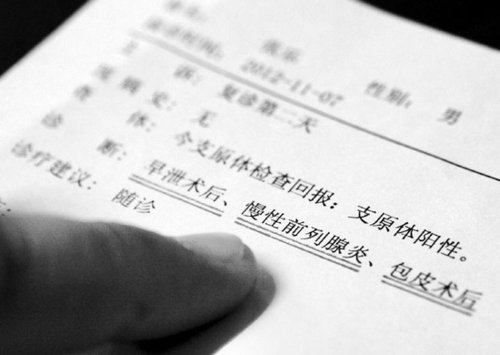 性别： 男
就诊时间： 2012-11-07
主 诉： 复诊第二天
现 病 史： 无
查 体： 今支原体检查回报：支原体阳性。
诊 断： 早泄术后、慢性前列腺炎、包皮术后
诊疗建议： 随诊